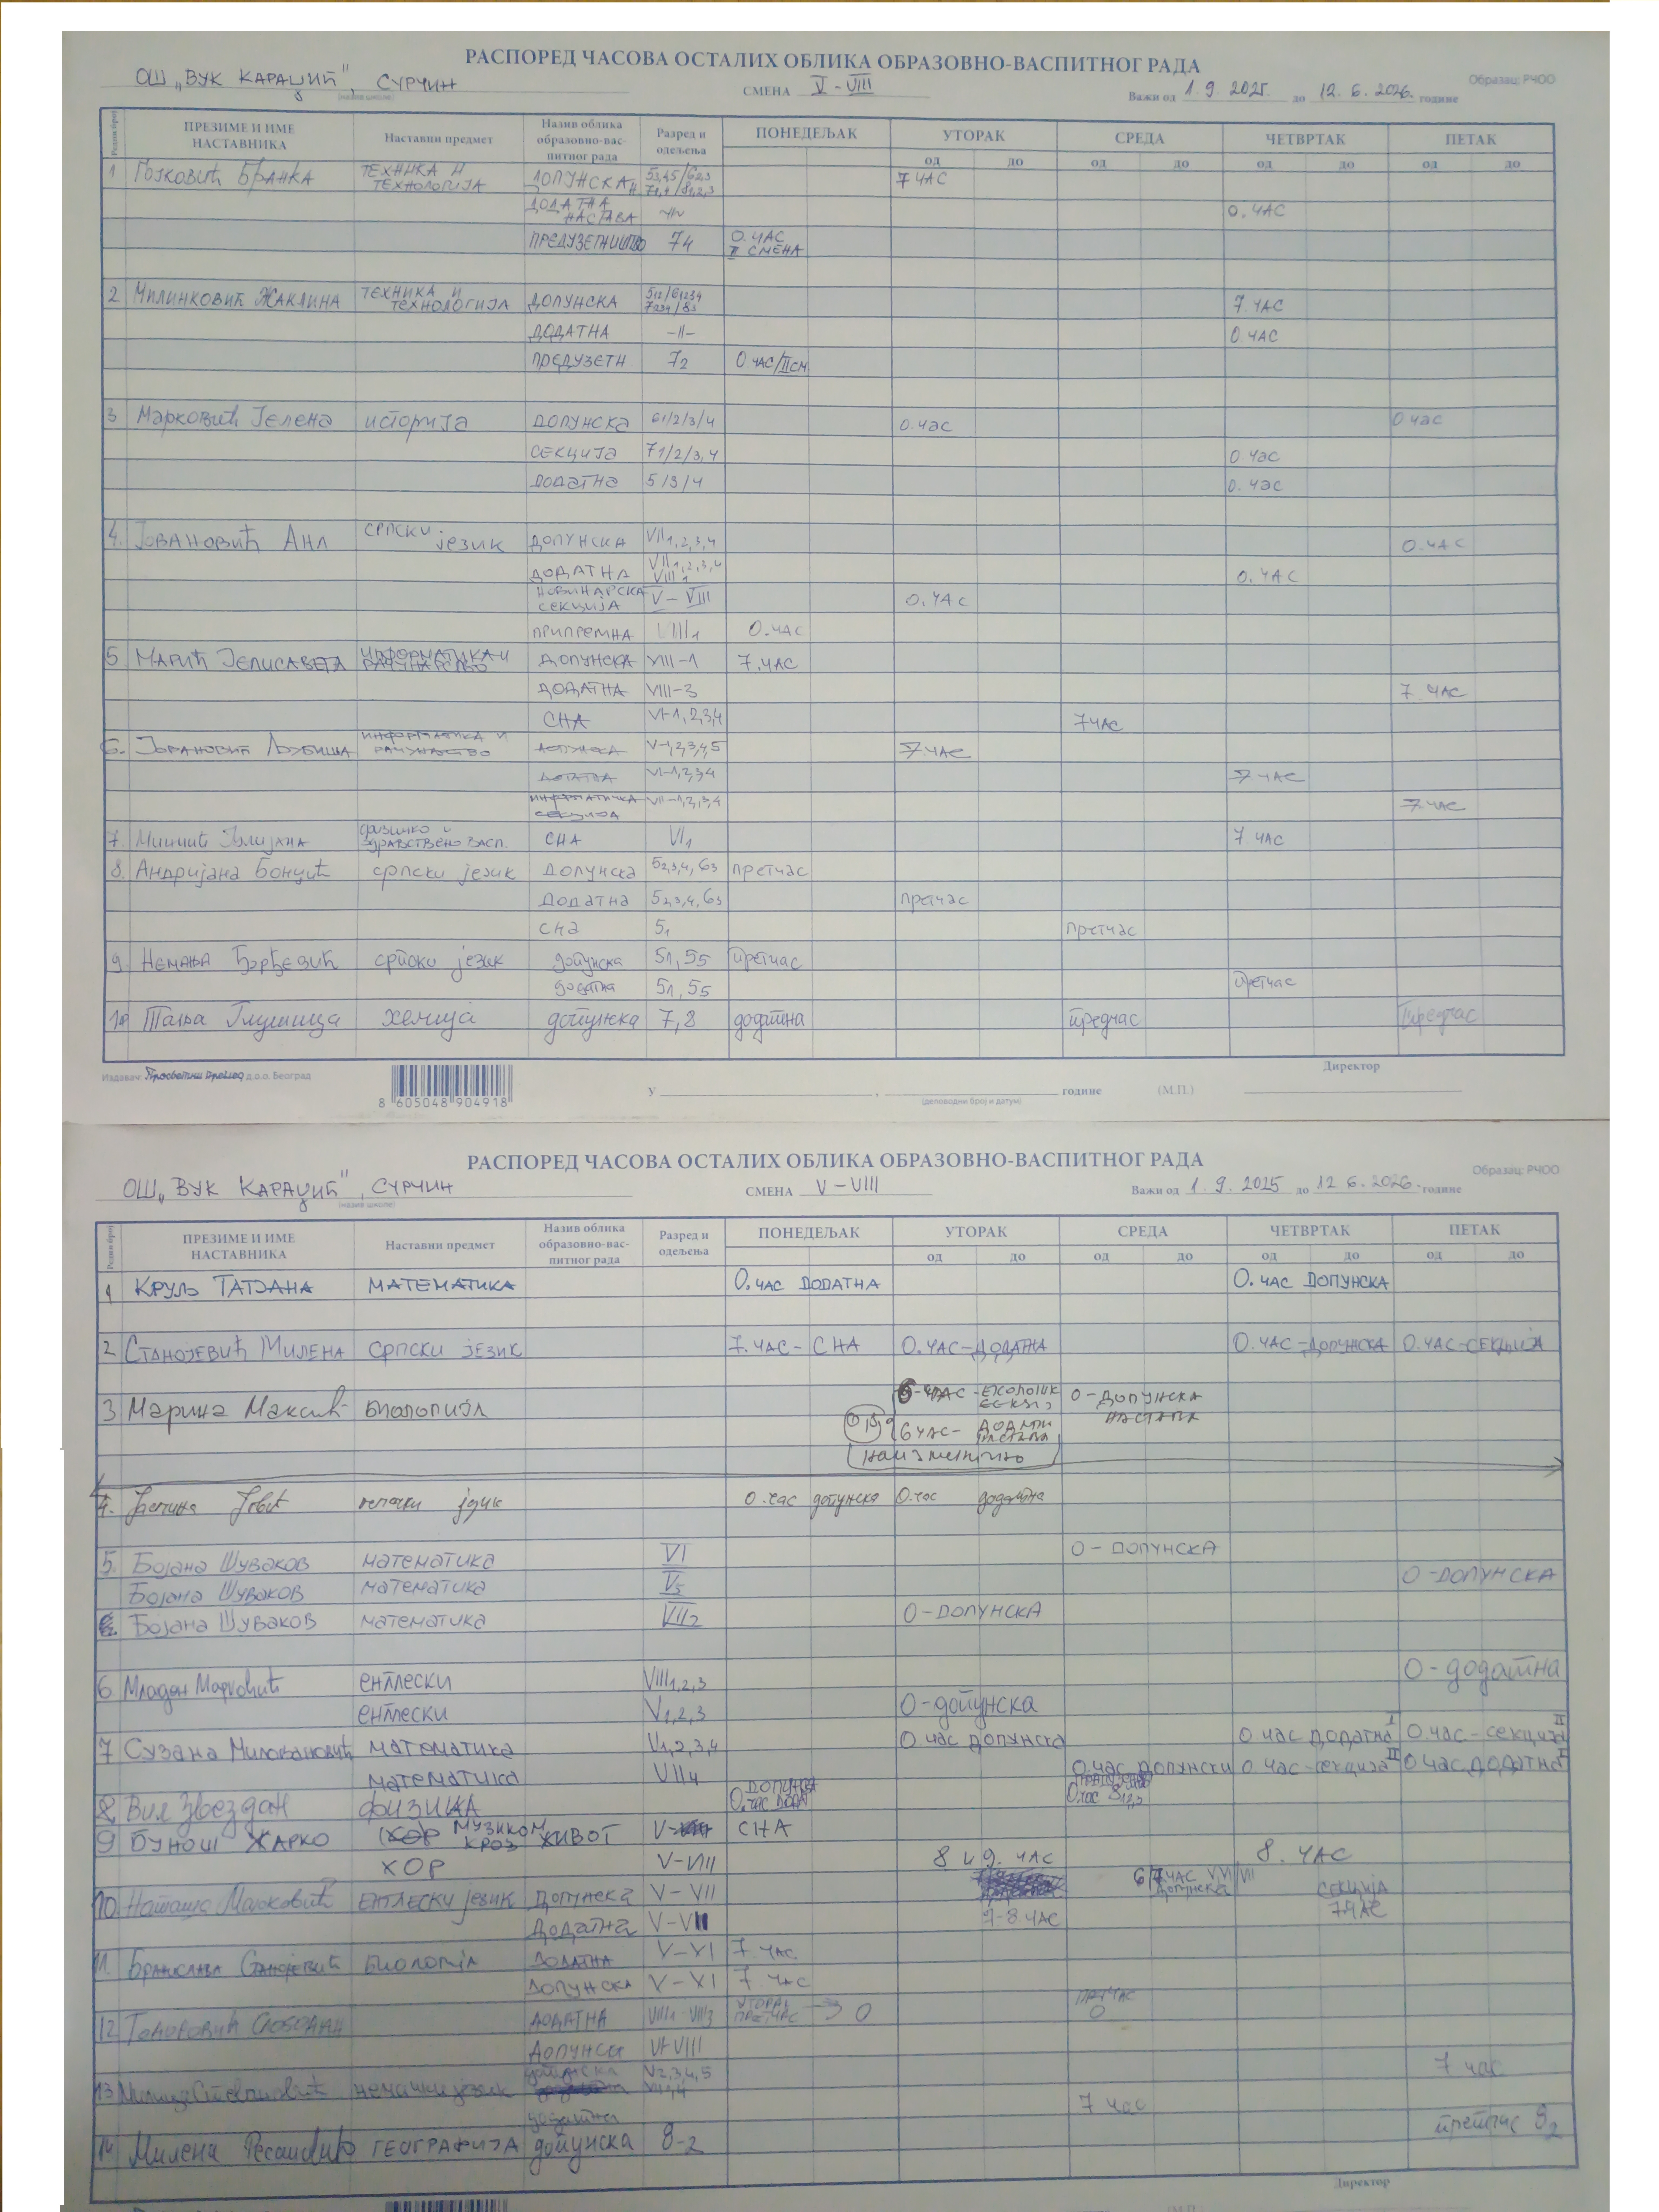 РАСПОРЕД ЧАСОВА ОСТАЛИХ ОБЛИКА ОБРАЗОВНО-ВАСПИТНОГ РАДА
Образац: РЧОО
ОШ „ВУК КАРАЏИЋ", СУРЧИН
(назив школе)
СМЕНА V - VIII
Важи од 1. 9. 2025. до 12. 6. 2026. године
Редни број ПРЕЗИМЕ И ИМЕ НАСТАВНИКА Наставни предмет Назив облика образовно-васпитног рада Разред и одељења ПОНЕДЕЉАК УТОРАК СРЕДА ЧЕТВРТАК ПЕТАК
од до од до од до од до
1 Гојковић БРАНКА ТЕХНИКА И ТЕХНОЛОГИЈА ДОПУНСКА 7 ЧАС
ДОДАТНА НАСТАВА 0. ЧАС
ПРЕДУЗЕТНИШТВО 74 0. ЧАС II СМЕНА
2 Милинковић ЖАКЛИНА ТЕХНИКА И ТЕХНОЛОГИЈА ДОПУНСКА 7. ЧАС
ДОДАТНА -II- 0. ЧАС
ПРЕДУЗЕТН 72 0 ЧАС/II СМ
3 Марковић Јелена историја ДОПУНСКА 61/2/3/4 0. час 0 час
СЕКЦИЈА 71/2/3,4 0 час
ДОДАТНА 5/3/4 0. час
4. ЈОВАНОВИЋ АНА СРПСКИ језик ДОПУНСКА VII1,2,3,4 0. ЧАС
ДОДАТНА VII1,2,3,4 VIII1 0. ЧАС
НОВИНАРСКА СЕКЦИЈА V - VIII 0. ЧАС
ПРИПРЕМНА VIII1 0. ЧАС
5 МАРИЋ ЈЕЛИСАВЕТА ИНФОРМАТИКА И РАЧУНАРСТВО ДОПУНСКА VIII-1 7. ЧАС
ДОДАТНА VIII-3 7. ЧАС
СНА VI-1,2,3,4 7 ЧАС
6. ЈОВАНОВИЋ ЉУБИША ИНФОРМАТИКА И РАЧУНАРСТВО ДОПУНСКА V-1,2,3,4,5 7 ЧАС
ДОДАТНА VI-1,2,3,4 7 ЧАС
ИНФОРМАТИЧКА СЕКЦИЈА VII-1,2,3,4 7 ЧАС
7. физичко и здравствено васп. СНА VI1 7 ЧАС
8. Андријана Бонџић српски језик Допунска 52,3,4, 63 претчас
Додатна 52,3,4, 63 претчас
СНА 51 претчас
9. Немања Ђорђевић српски језик допунска 51, 55 претчас
додатна 51, 55 претчас
10 Тања Глушица хемија допунска 7, 8 додатна предчас предчас
Издавач: Просветни преглед д.о.о. Београд
8 605048 904918
У , године (М.П.) Директор
(деловодни број и датум)
РАСПОРЕД ЧАСОВА ОСТАЛИХ ОБЛИКА ОБРАЗОВНО-ВАСПИТНОГ РАДА
Образац: РЧОО
ОШ „ВУК КАРАЏИЋ", СУРЧИН
(назив школе)
СМЕНА V - VIII
Важи од 1. 9. 2025 до 12 6. 2026. године
Редни број ПРЕЗИМЕ И ИМЕ НАСТАВНИКА Наставни предмет Назив облика образовно-васпитног рада Разред и одељења ПОНЕДЕЉАК УТОРАК СРЕДА ЧЕТВРТАК ПЕТАК
од до од до од до од до
1 КРУЉ ТАТЈАНА МАТЕМАТИКА 0. ЧАС ДОДАТНА 0. ЧАС ДОПУНСКА
2 СТАНОЈЕВИЋ МИЛЕНА СРПСКИ ЈЕЗИК 7. ЧАС - СНА 0. ЧАС-ДОДАТНА 0. ЧАС-ДОПУНСКА 0. ЧАС-СЕКЦИЈА
3 Марина Максић БИОЛОГИЈА 6 ЧАС - 0 - ДОПУНСКА НАСТАВА
6 ЧАС-
наизменично
4. језик 0. час допунска 0. час додатна
5. Бојана Шуваков математика VI 0 - ДОПУНСКА
Бојана Шуваков математика V5 0 -ДОПУНСКА
Бојана Шуваков математика VII2 0 -ДОПУНСКА
6 Младен Марковић енглески VIII1,2,3 0 - додатна
енглески V1,2,3 0 -допунска
7 Сузана Миловановић математика 0 час допунска 0 час додатна I 0. час - секција II
математика VII4 0. час допунски 0 час -секција II 0 час додатна I
8 Вил Звездан ФИЗИКА ДОПУНСКА 0. ЧАС ДОДАТ
9 БУНОШ ЖАРКО МУЗИКОМ КРОЗ ЖИВОТ V СНА
ХОР V-VIII 8 и 9. ЧАС 8. ЧАС
10 Наташа Марковић ЕНГЛЕСКИ језик Допунска V - VII Допунска СЕКЦИЈА 7 ЧАС
Додатна 7-8 ЧАС
11. БРАНИСЛАВА СТАНОЈЕВИЋ БИОЛОГИЈА ДОДАТНА V-VI 7 ЧАС
ДОПУНСКА V - VI 7 ЧАС
12 ТОДОРОВИЋ СЛОБОДАН ДОДАТНА VIII1-VIII3 УТОРАК ПРЕТЧАС 0 ПРЕТЧАС 0
ДОПУНСК
13 немачки језик допунска V2,3,4,5 7 час
додатна 7 час
14 Милена ГЕОГРАФИЈА допунска 8-2 претчас 82
Директор
(М.П.)